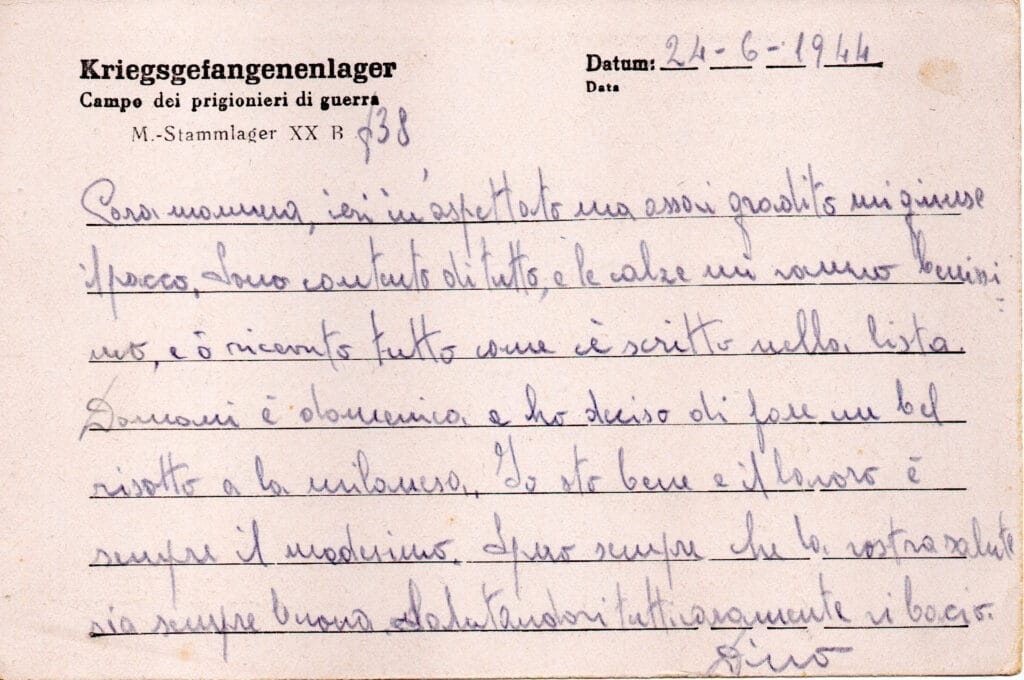 Kriegsgefangenenlager
Datum: 24-6-1944
Campo dei prigionieri di guerra
Data
M.-Stammlager XX B 738
Cara mamma, ieri in'aspettato ma assai gradito mi giunse
il pacco. Sono contento di tutto, e le calze mi vanno benissi-
mo, e ò ricevuto tutto come è scritto nella lista.
Domani è domenica e ho deciso di fare un bel
risotto a la milanesa. Io sto bene e il lavoro è
sempre il medesimo. Spero sempre che la vostra salute
sia sempre buona. Salutandovi tutti caramente vi bacio.
Dino